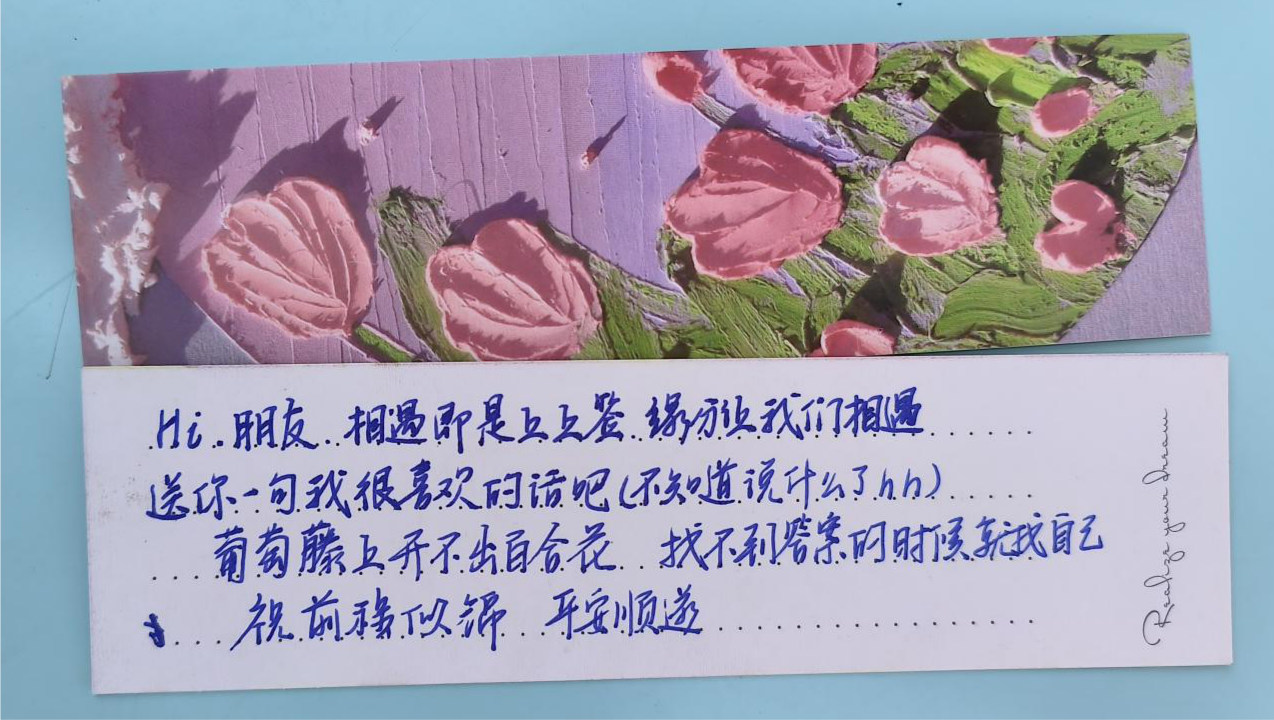 Hi 朋友 相遇即是上上签 缘分让我们相遇
送你一句我很喜欢的话吧(不知道说什么了hh)
葡萄藤上开不出百合花 找不到答案的时候就找自己
祝前程似锦 平安顺遂
Realize your dream